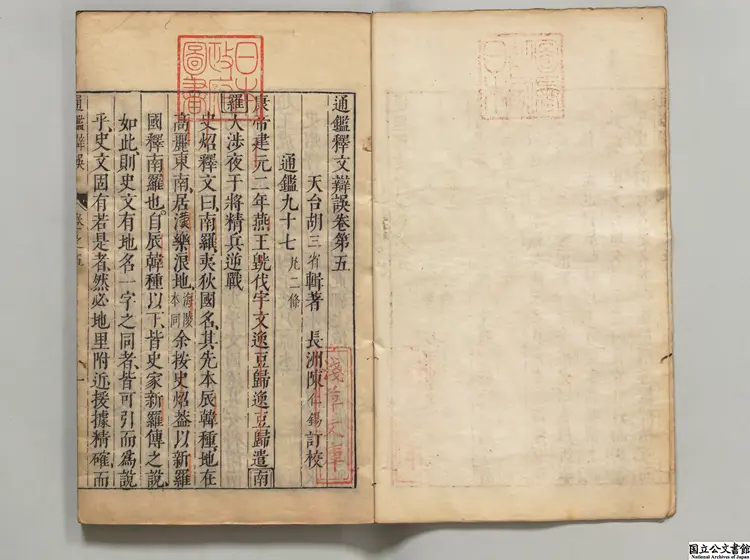 通鑑釋文辯誤卷第五
天台胡三省輯著 長洲陳仁錫訂校
通鑑九十七 凡二條
康帝建元二年燕王皝伐宇文逸豆歸逸豆歸遣南
羅大涉夜干將精兵逆戰
史炤釋文曰南羅夷狄國名其先本辰韓種地在
高麗東南居漢樂浪地海陵本同余按史炤葢以新羅
國釋南羅也自辰韓種以下皆史家新羅傳之說
如此則史文有地名一字之同者皆可引而為說
乎史文固有若是者然必地里附近援據精確而
通鑑辯誤 卷之五
日本政府圖書
淺草文庫
日本政府圖書
国立公文書館
National Archives of Japan